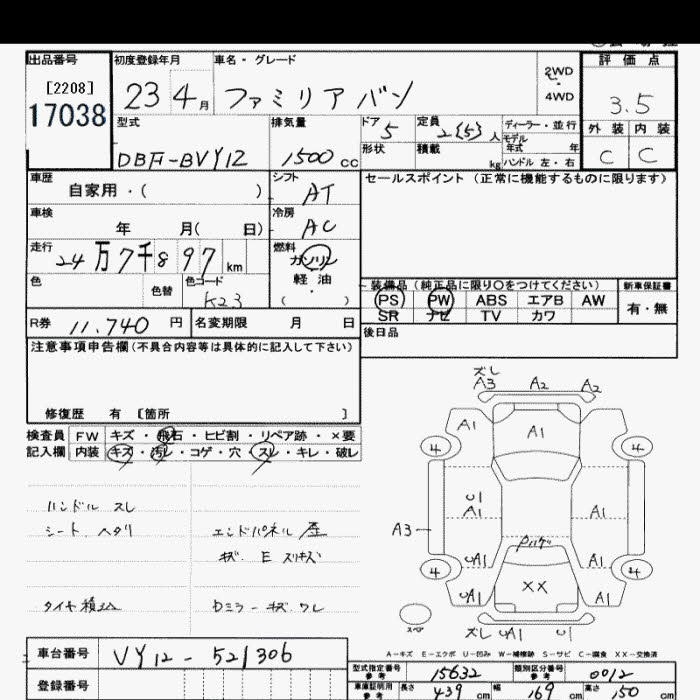 出品番号 初度登録年月 車名・グレード 2WD 評価点
[2208] 4WD
17038 23 4月 ファミリアバン 3.5
型式 排気量 ドア 5 定員 2{5}人 ディーラー・並行 外装 内装
DBF-BVY12 1500cc 形状 積載 kg モデル年式 年 C C
ハンドル 左・右
車歴 自家用・( ) シフト AT セールスポイント (正常に機能するものに限ります)
車検 年 月( 日) 冷房 AC
走行 24万7千897km 燃料 ガソリン
軽油
( )
色 色替 色コード K23 装備品 (純正品に限り○をつけてください) 新車保証書
PS PW ABS エアB AW 有・無
SR ナビ TV カワ
R券 11,740円 名変期限 月 日 後日品
注意事項申告欄(不具合内容等は具体的に記入して下さい)
修復歴 有 [箇所 ]
検査員 FW キズ・飛石・ヒビ割・リペア跡・×要
記入欄 内装 キズ・汚レ・コゲ・穴・スレ・キレ・破レ
ズレ
A3 A2 A2
A1 A1
4 4
ハンドル スレ
シート ヘタリ エンドパネル
U1
A1 A1
A3
キズ E
A1 A1
4 XX 4
タイヤ積込 ミラーキズ ワレ
A1
スペア
ズレ A1 U1
A-キズ E-エクボ U-凹み W-補修跡 S-サビ C-腐食 XX-交換済
車台番号 VY12-521306
型式指定番号 参考 15632 類別区分番号 参考 0012
登録番号 車庫証明用 参考 長さ 439cm 幅 169cm 高さ 150cm